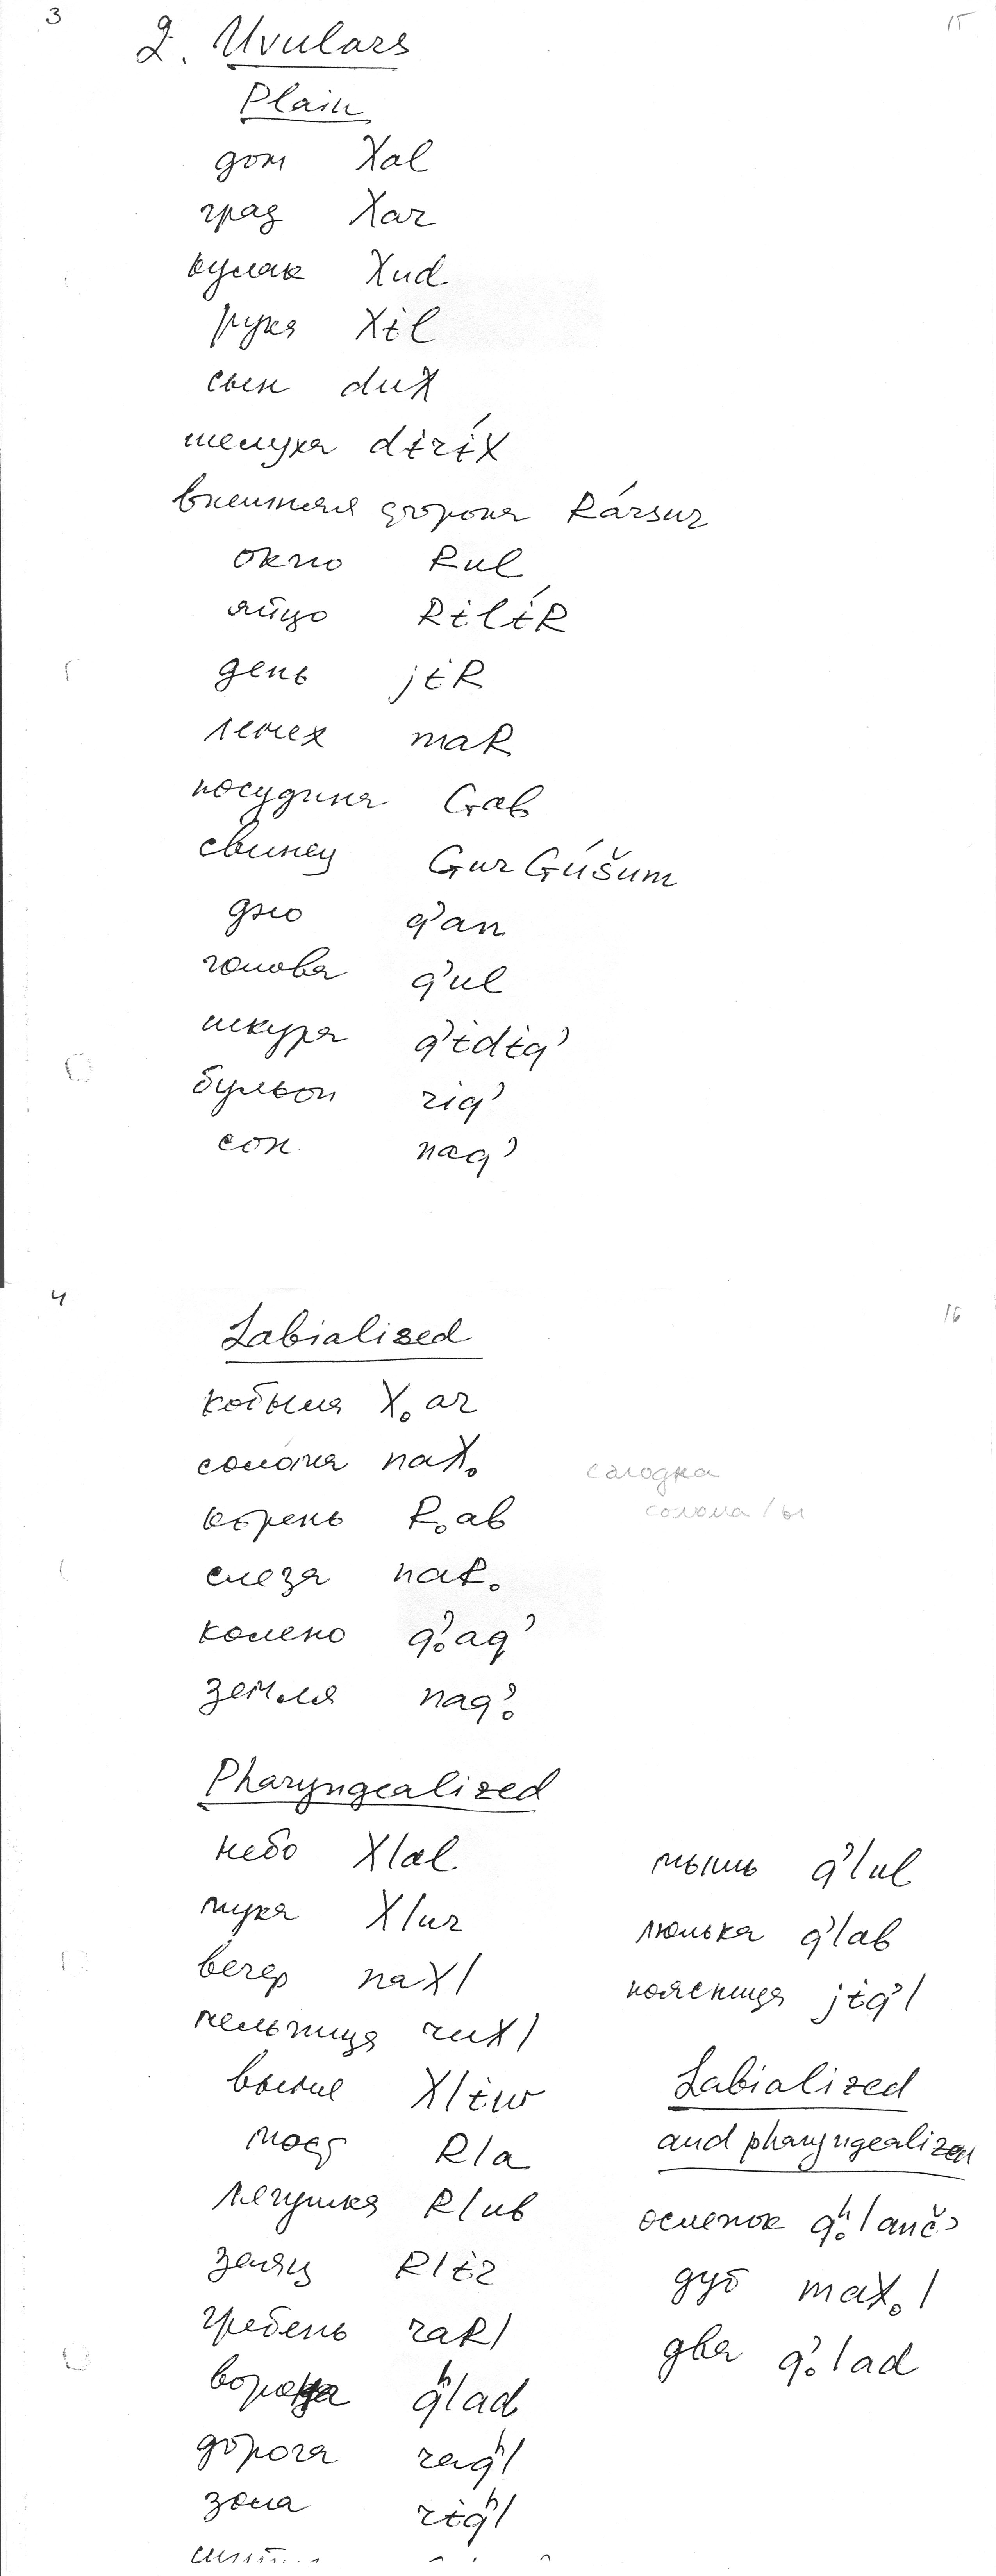 3
15
2. Uvulars
Plain
дом Xal
град Xar
кулак Xud
рука Xɨl
сын duX
шелуха dɨrɨ́X
внешняя сторона Rársur
окно Rul
яйцо Rɨlɨ́R
день jɨR
лемех maR
посудина Gab
свинец GurGúšum
дно q’an
голова q’ul
шкура q’ɨdɨq’
бульон riq’
сон naq’
4
16
Labialized
кобыла X｡ar
солома naX｡ сагодна
солома/ы
корень R｡ab
слеза naR｡
колено q’｡aq’
земля naq’｡
Pharyngealized
небо X/al
мука X/ur
вечер naX/
мельница ruX/
выше X/ɨw
мост R/a
лягушка R/ub
заяц R/ɨr
гребень raR/
ворона qʰ/ad
дорога raqʰ/
зола rɨqʰ/
мышь q’/ul
люлька q’/ab
поясница jɨq’/
Labialized
and pharyngealized
осленок qʰ｡/anč’
дуб maX｡/
два q’｡/ad